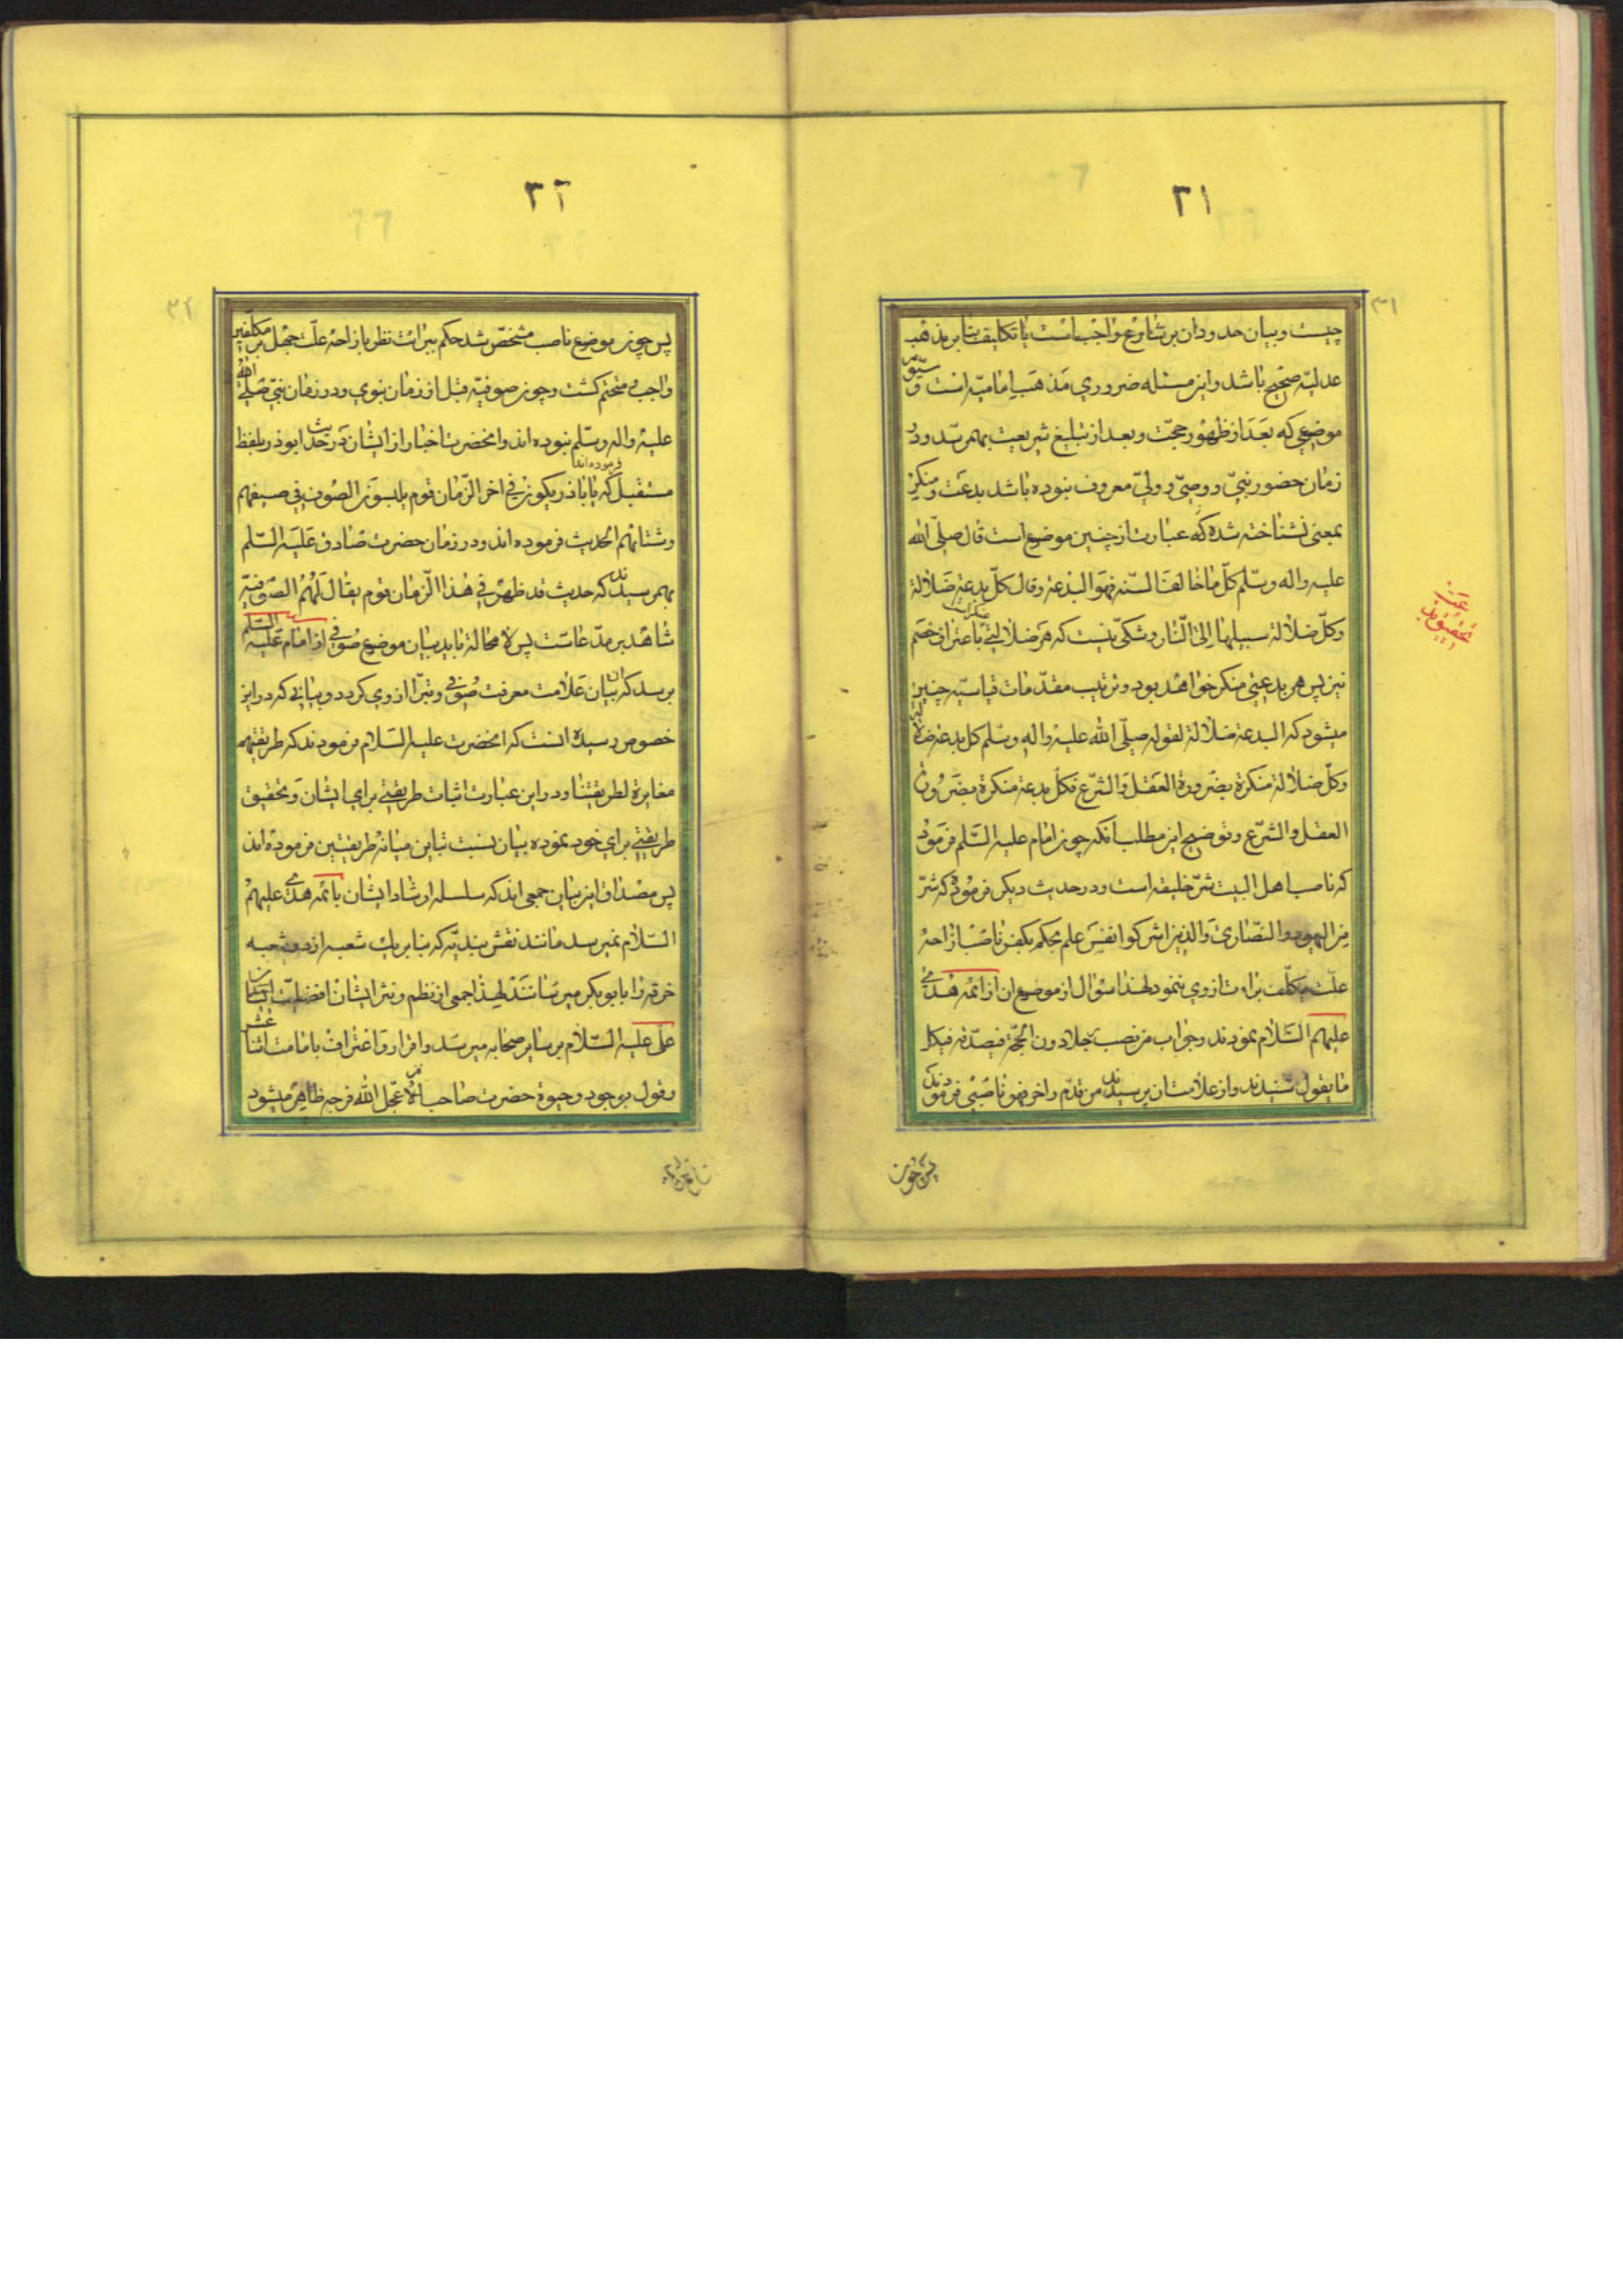 ۲۱
چیست و بیان حدود ان بر شارع واجبست یا تکلیف بنا بر مذهب
عدلیّه صحیح باشد و این مسئله ضروری مذهب امامیّه است و
موضوعی که بعد از ظهور حجّت و بعد از تبلیغ شریعت بهم رسد و در
زمان حضور نبیّ و وصیّ و ولیّ معروف نبوده باشد بدعت و منکر
بمعنی نشناخته شده که عبارت از چنین موضوع است قال صلّی الله
علیه واله وسلّم کلّ ما خالف السنّه فهو البدعة وقال کلّ بدعة ضلالة
وکلّ ضلالة سبیلها الی النّار و شکّی نیست که هر ضلالتی باعتراف خصم
نیز پس هر بدعتی منکر خواهد بود و ترتیب مقدّمات قیاسیّه چنین
میشود که البدعة ضلالة لقوله صلّی الله علیه واله وسلّم کل بدعة ضلالة
وکلّ ضلالة منکرة بضرورة العقل والشّرع فکلّ بدعة منکرة بضرورة
العقل والشّرع و توضیح این مطلب انکه چون امام علیه السّلم فرمود
که ناصب اهل البیت شرّ خلیقه است و در حدیث دیکر فرموده که شرّ
من الیهود والنّصاری والذین اشرکوا نفس علم بحکم بکفر ناصب ازاحهٔ
علّت مکلّف برائت از وی ننمود لهذا سؤال از موضوع ان از ائمهٔ هدی
علیهم السّلام نمودند و جواب من نصب رجلا دون الحجّة فیصدّقه فی کل
ما یقول شنیدند و از علامت ان پرسیدند من قدّم واخر فهو ناصبی فرمودند
پس چون
۲۲
پس چون موضوع ناصب مشخّص شد حکم ببرائت نظر بازاحهٔ علّت جهل بر مکلّفین
واجب و متحتم کشت و چون صوفیّه قبل از زمان نبوی و در زمان نبی صلی الله
علیه واله وسلّم نبوده اند و انحضرت اخبار از ایشان در حدیث ابوذر بلفظ
مستقبل فرموده اند که یا اباذر یکون فی اخر الزّمان قوم یلبسون الصّوف فی صیفهم
وشتائهم الحدیث فرموده اند و در زمان حضرت صادق علیه السّلم
بهم رسیدند که حدیث قد ظهر فی هذا الزّمان قوم یقال لهم الصّوفیّه
شاهد بر مدّعاست پس لا محالة باید بیان موضوع صوفی از امام علیه السّلم
برسد که ان بیان علامت معرفت صوفی و تبرّا از وی کردد و بیانی که در این
خصوص رسیده انست که انحضرت علیه السّلام فرمودند که طریقتهم
مغایرة لطریقتنا و در این عبارت اثبات طریقتی برای ایشان و تحقیق
طریقتی برای خود نموده بیان نسبت تباین میانهٔ طریقتین فرموده اند
پس مصداق این بیان جمعی اند که سلسله ارشاد ایشان بائمه هدی علیهم
السّلام نمیرسد مانند نقش بندیّه که بنا بر یک شعبه از دو شعبه
خرقه را بابوبکر میرسانند لهذا جمعی از نظم و نثر ایشان افضلیّت
علی علیه السّلام بر سایر صحابه میرسد و اقرار و اعتراف بامامت اثنا عشر
وقول بوجود وحیوة حضرت صاحب الامر عجّل الله فرجه ظاهر میشود